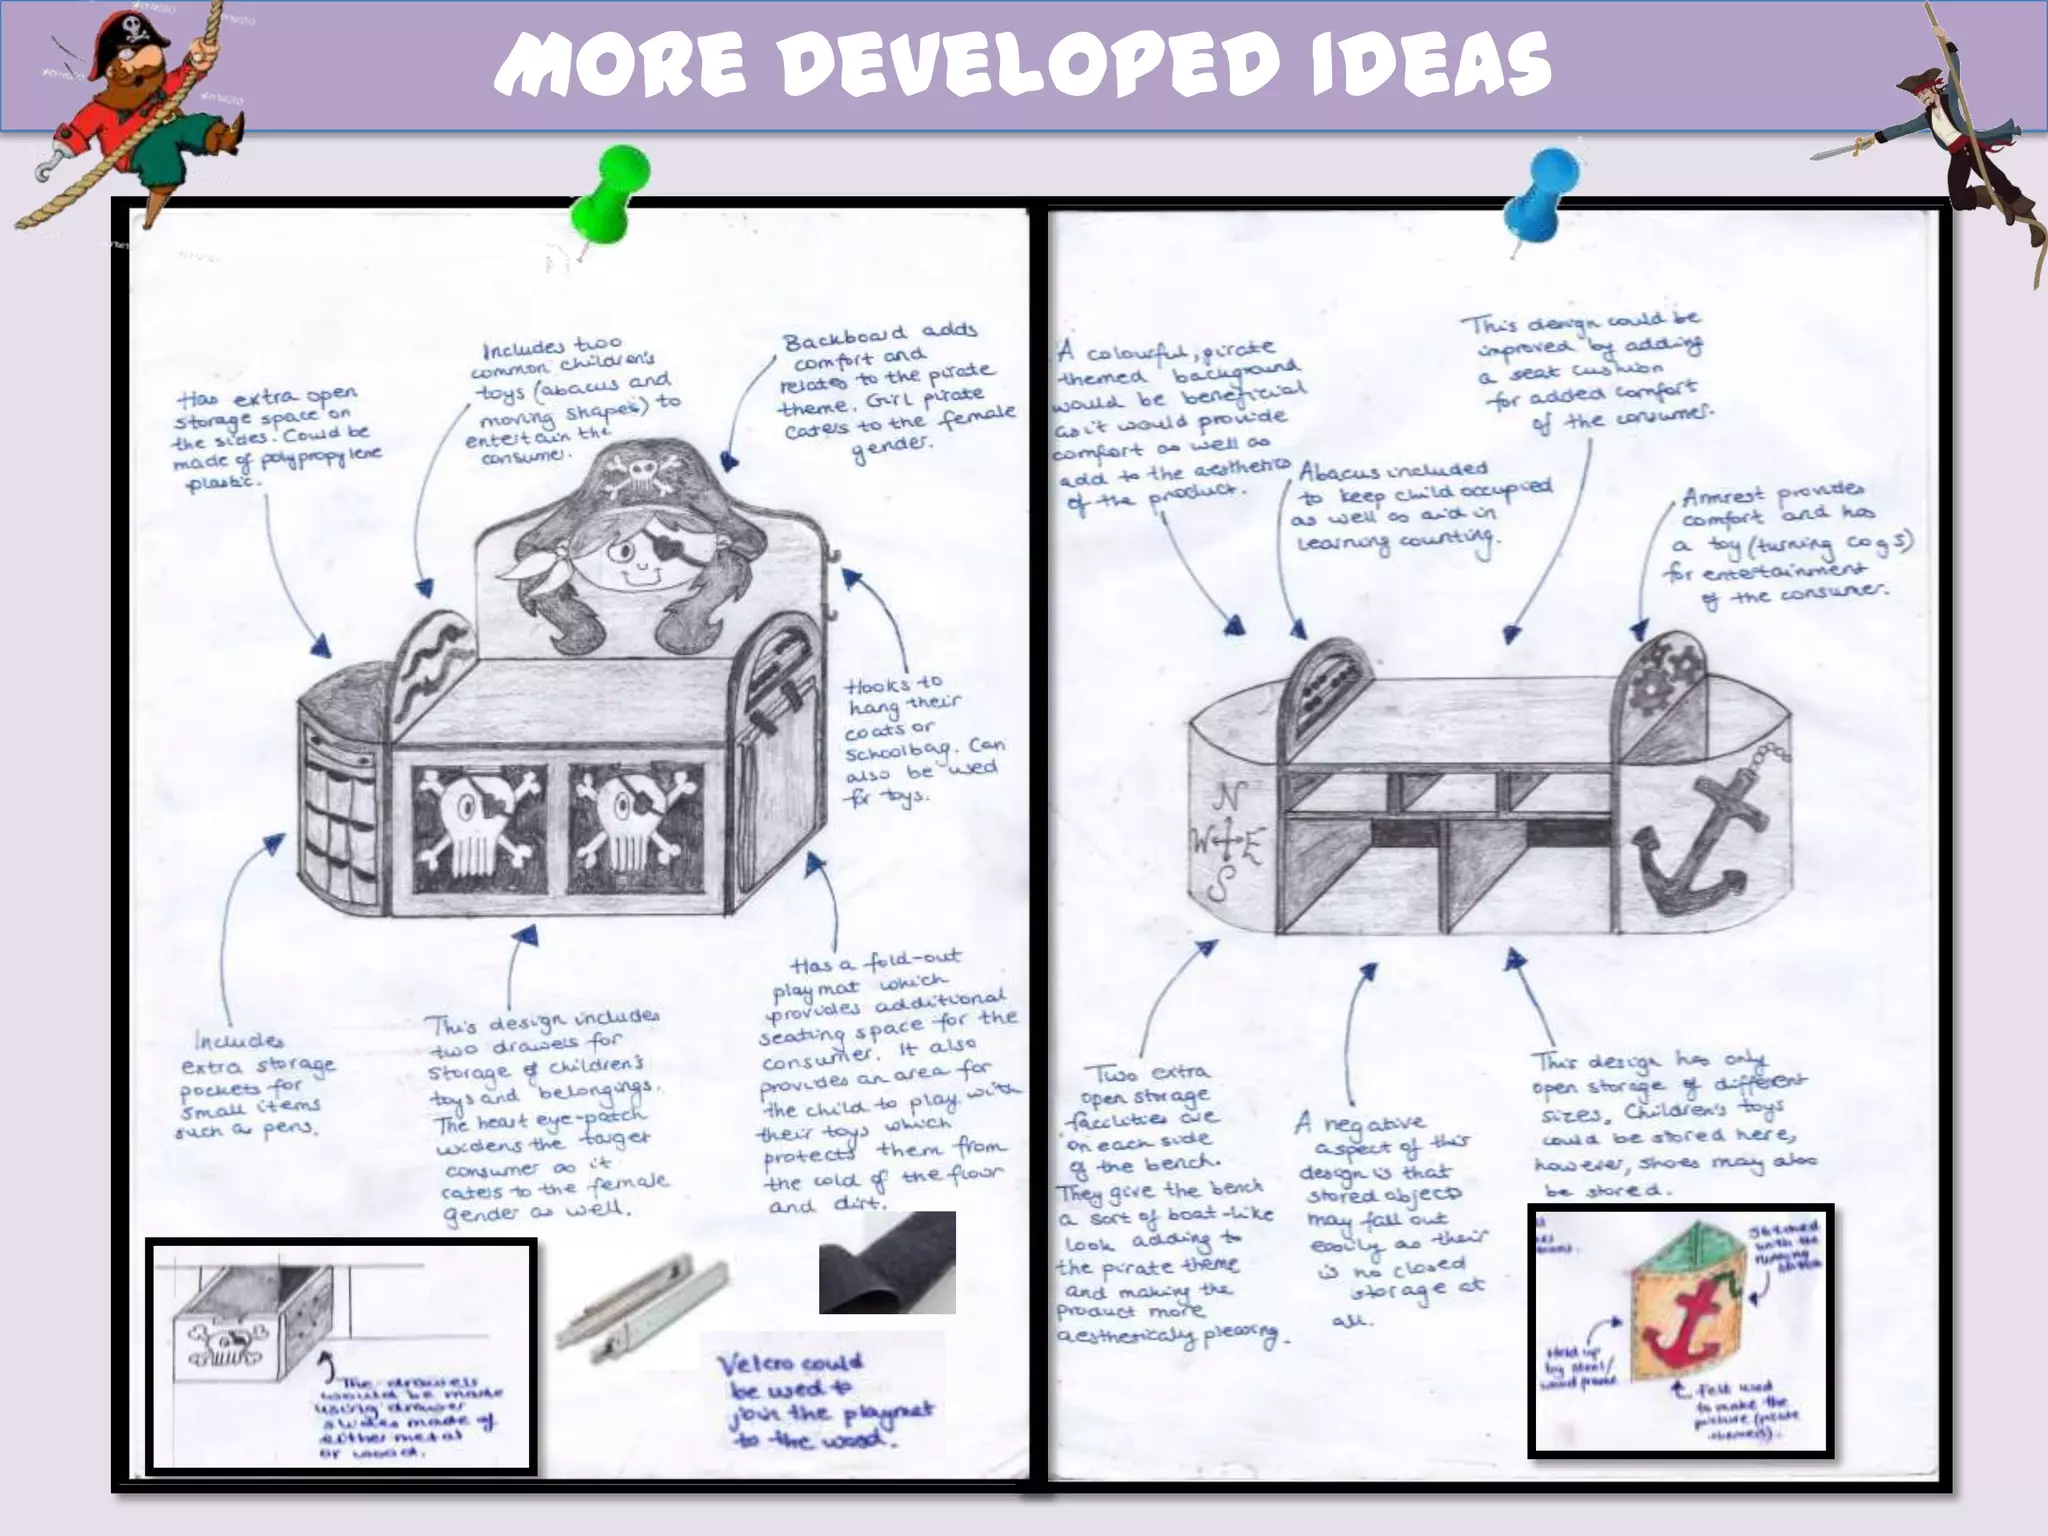 MORE DEVELOPED IDEAS
Has extra open
storage space on
the sides. Could be
made of polypropylene
plastic.
Includes two
common children's
toys (abacus and
moving shapes) to
entertain the
consumer.
Backboard adds
comfort and
relates to the pirate
theme. Girl pirate
caters to the female
gender.
Hooks to
hang their
coats or
schoolbag. Can
also be used
for toys.
Includes
extra storage
pockets for
small items
such as pens.
This design includes
two drawers for
storage of children's
toys and belongings.
The heart eye-patch
widens the target
consumer as it
caters to the female
gender as well.
Has a fold-out
playmat which
provides additional
seating space for the
consumer. It also
provides an area for
the child to play with
their toys which
protects them from
the cold of the floor
and dirt.
The drawers
would be made
using drawer
slides made of
either metal
or wood.
Velcro could
be used to
join the playmat
to the wood.
A colourful, pirate
themed background
would be beneficial
as it would provide
comfort as well as
add to the aesthetics
of the product.
Abacus included
to keep child occupied
as well as aid in
learning counting.
This design could be
improved by adding
a seat cushion
for added comfort
of the consumer.
Armrest provides
comfort and has
a toy (turning cogs)
for entertainment
of the consumer.
N
W E
S
Two extra
open storage
facilities are
on each side
of the bench.
They give the bench
a sort of boat-like
look adding to
the pirate theme
and making the
product more
aesthetically pleasing.
A negative
aspect of this
design is that
stored objects
may fall out
easily as their
is no closed
storage at
all.
This design has only
open storage of different
sizes. Children's toys
could be stored here,
however, shoes may also
be stored.
Stitched
with the
running
stitch
Held up
by steel/
wood frame
Felt used
to make the
picture (pirate